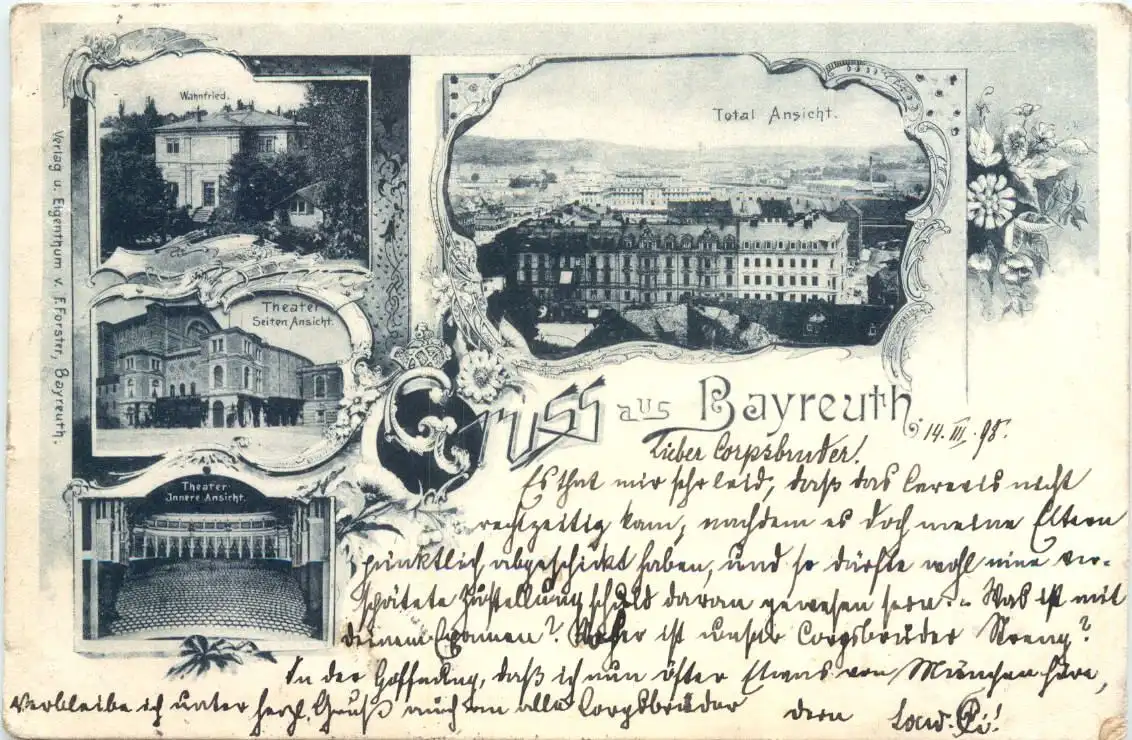 Wahnfried.
Total Ansicht.
Verlag u. Eigenthum v. F. Forster, Bayreuth.
Theater
Seiten Ansicht.
Theater
Innere Ansicht.
Gruss aus Bayreuth.
14. III. 98.
Lieber Corpsbruder!
Es that mir sehr leid, daß das Cerevis nicht
rechtzeitig kam, nachdem es doch meine Eltern
pünktlich abgeschickt haben, und so dürfte wohl eine ver-
spätete Zustellung schuld daran gewesen sein. - Was ist mit
Deinem Examen? ist unser Corpsbruder Streng?
In der Hoffnung, daß ich nun öfter Etwas von München höre,
verbleibe ich unter herzl. Gruß auch an alle Corpsbrüder Dein